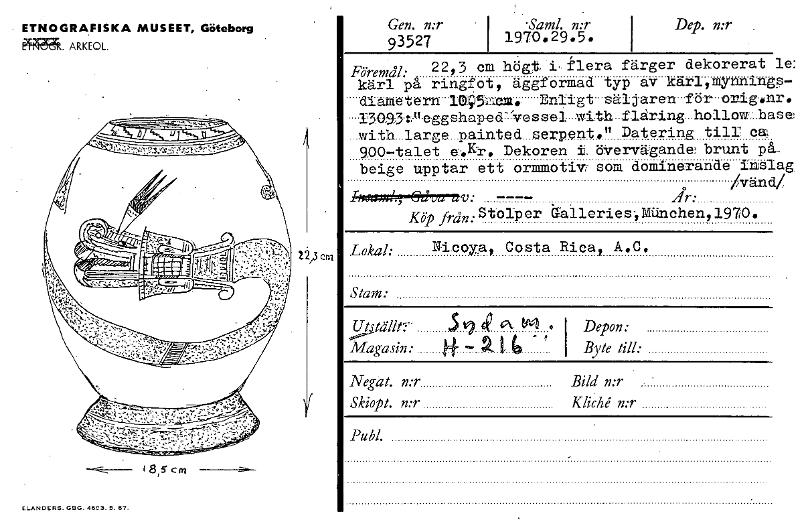 ETNOGRAFISKA MUSEET, Göteborg
ETNOGR. ARKEOL.
Gen. n:r
93527
Saml. n:r
1970.29.5.
Dep. n:r
Föremål: 22,3 cm högt i flera färger dekorerat
kärl på ringfot, äggformad typ av kärl, mynnings-
diametern 10,5 cm. Enligt säljaren för orig.nr.
13093:"eggshaped vessel with flaring hollow base
with large painted serpent." Datering till ca
900-talet e.Kr. Dekoren i övervägande brunt på
beige upptar ett ormmotiv som dominerande inslag
/vänd/
Insaml., Gåva av: ---- År:
Köp från: Stolper Galleries, München, 1970.
Lokal: Nicoya, Costa Rica, A.C.
Stam:
Utställt: Sydam.
Depon:
Magasin: H-216
Byte till:
Negat. n:r
Bild n:r
Skiopt. n:r
Kliché n:r
Publ.
22,3 cm
18,5 cm
ELANDERS. GBG.